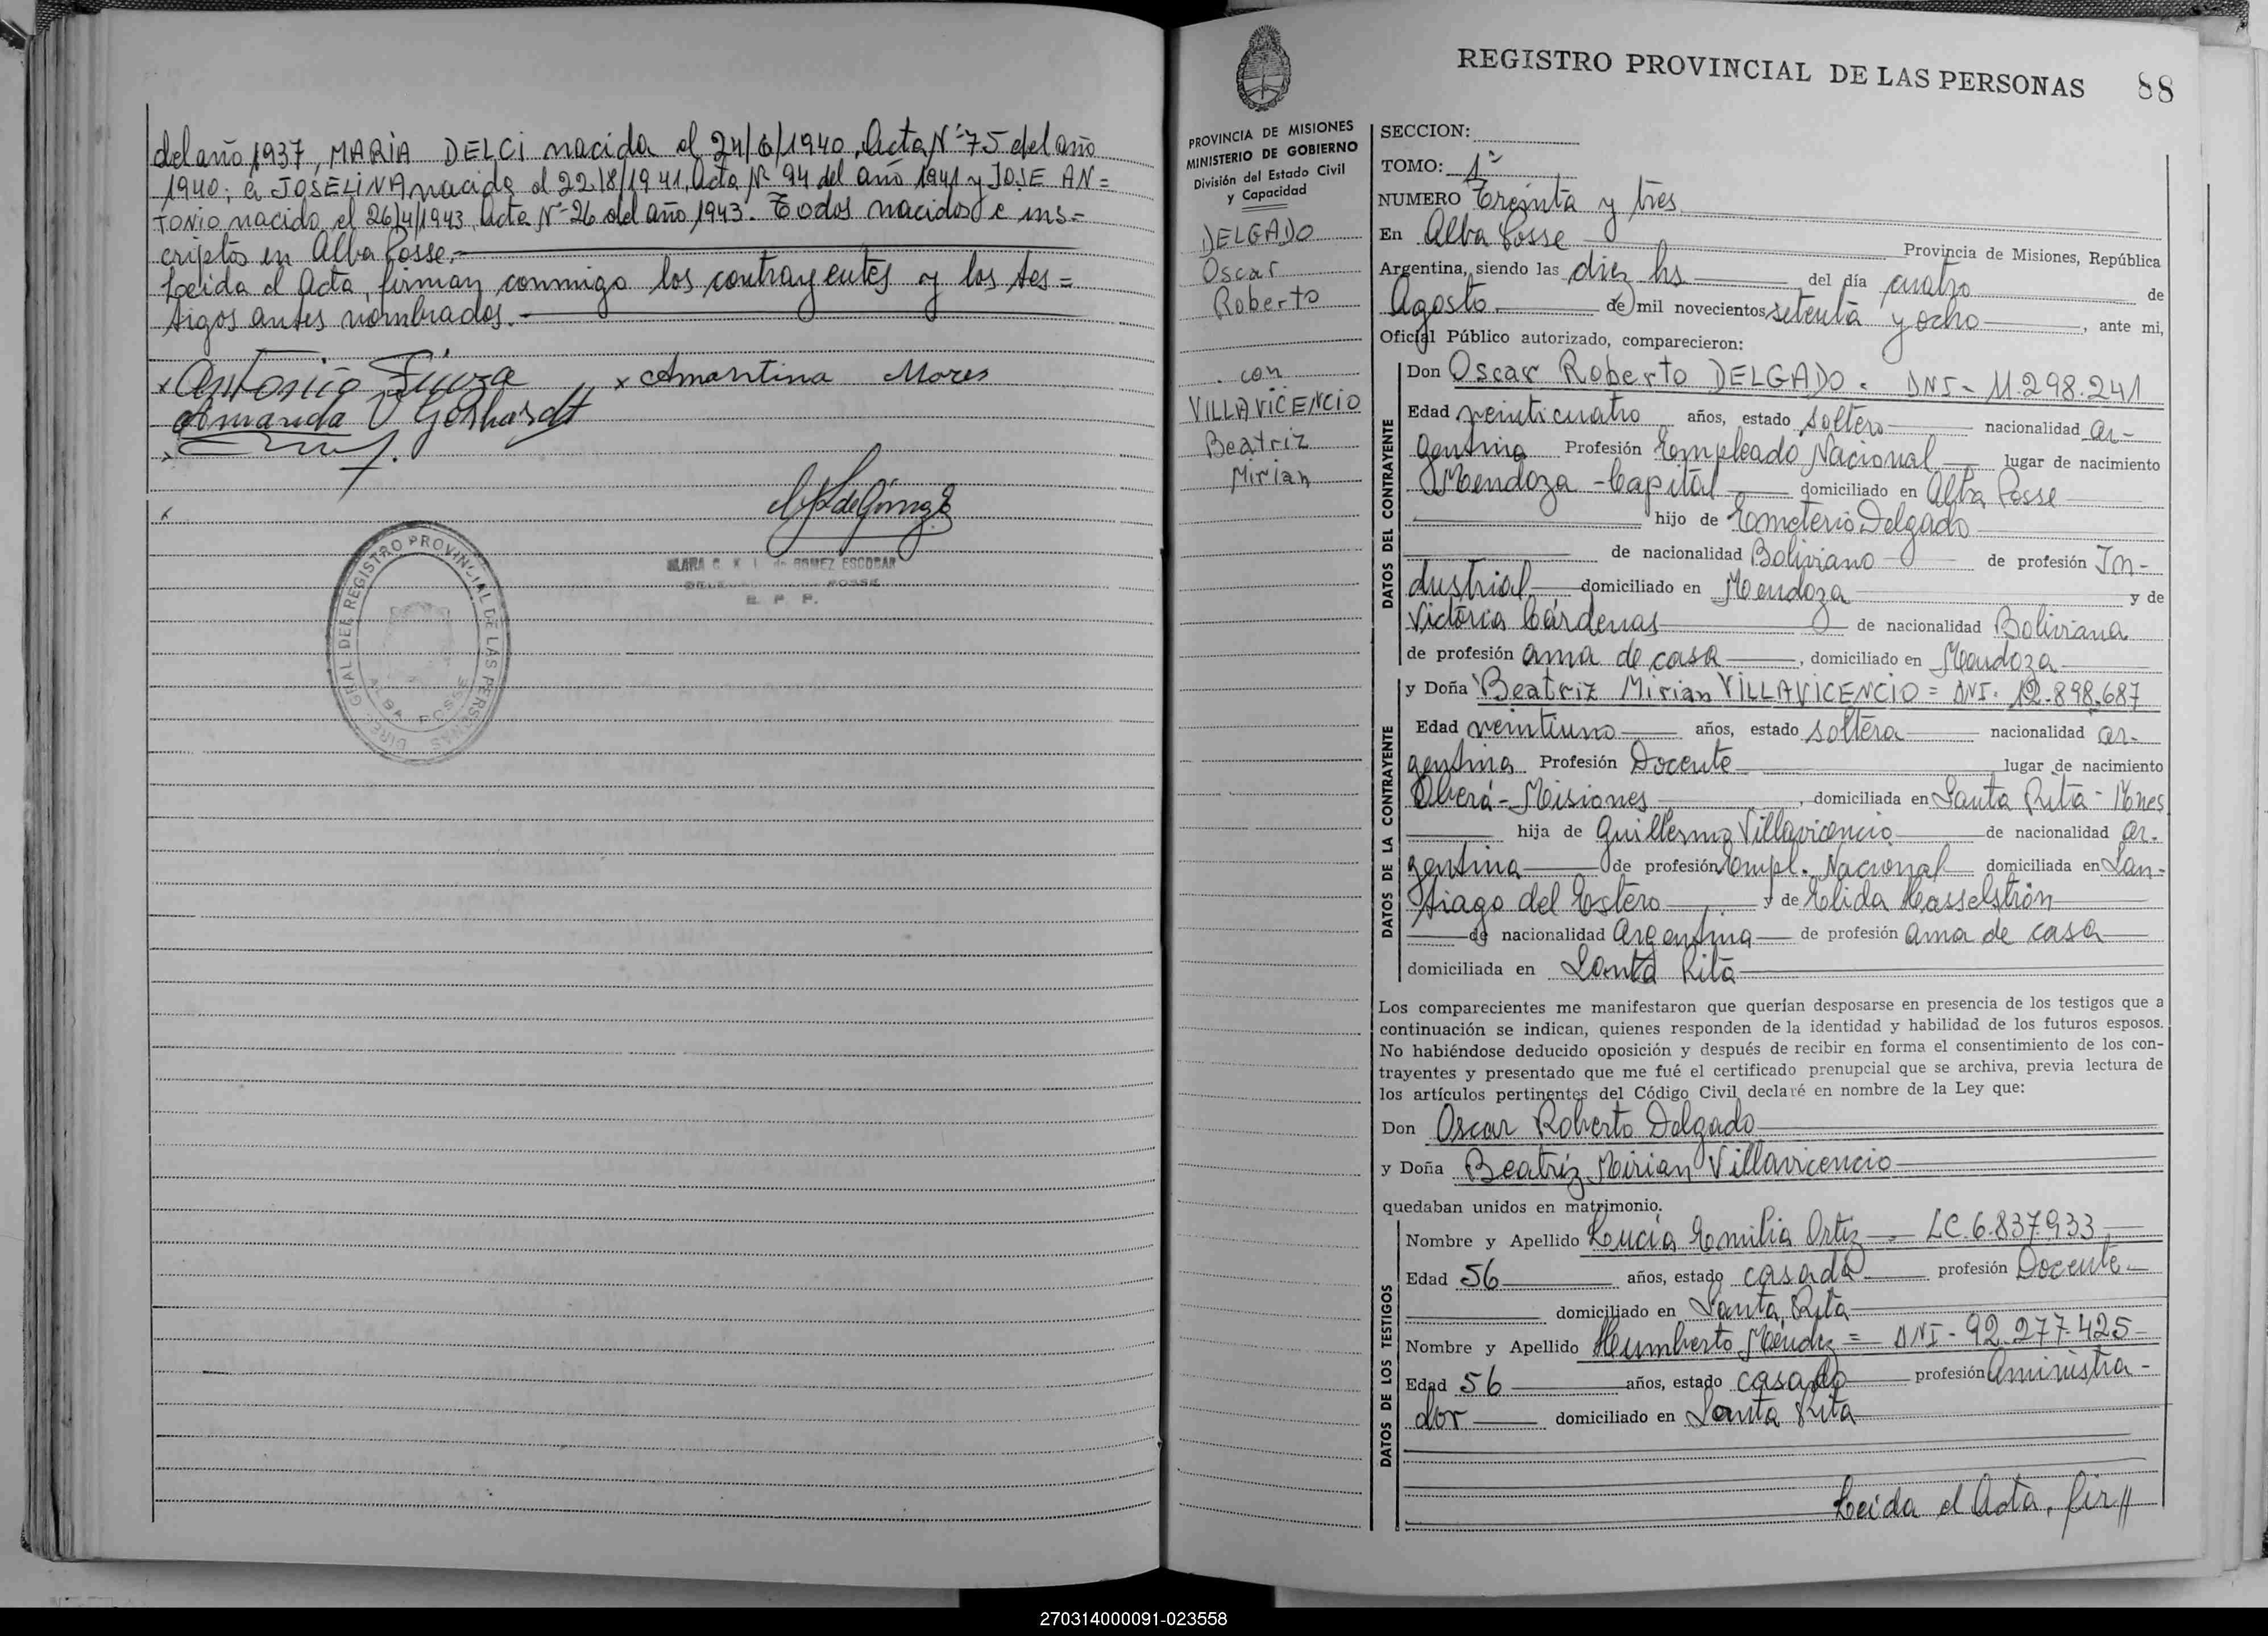 del año 1937, MARIA DELCI nacida el 24/6/1940, Acta Nº 75 del año
1940; a JOSELINA nacida el 22/8/1941, Acta Nº 94 del año 1941 y JOSE AN=
TONIO nacido el 26/4/1943, Acta Nº 26 del año 1943. Todos nacidos e ins=
criptos en Alba Posse.-
Leida el Acta, firman conmigo los contrayentes y los tes=
tigos antes nombrados.-
x Antonio x Amantina Mores
Amanda Gerhardt
CLARA C. K. L. de GOMEZ ESCOBAR
POSSE
R. P. P.
DIREC. GRAL. DEL REGISTRO PROVINCIAL DE LAS PERSONAS
ALBA POSSE
REGISTRO PROVINCIAL DE LAS PERSONAS 88
PROVINCIA DE MISIONES
MINISTERIO DE GOBIERNO
División del Estado Civil
y Capacidad
DELGADO
Oscar
Roberto
con
VILLAVICENCIO
Beatriz
Mirian
SECCION:
TOMO: 1º
NUMERO Treinta y tres
En Alba Posse Provincia de Misiones, República
Argentina, siendo las diez hs del día cuatro de
Agosto de mil novecientos setenta y ocho, ante mi,
Oficial Público autorizado, comparecieron:
DATOS DEL CONTRAYENTE
Don Oscar Roberto DELGADO - DNI- 11.298.241
Edad veinticuatro años, estado soltero nacionalidad ar-
gentina Profesión Empleado Nacional lugar de nacimiento
Mendoza - Capital domiciliado en Alba Posse
hijo de Emeterio Delgado
de nacionalidad Boliviano de profesión In-
dustrial domiciliado en Mendoza y de
Victoria Cárdenas de nacionalidad Boliviana
de profesión ama de casa, domiciliado en Mendoza
DATOS DE LA CONTRAYENTE
y Doña Beatriz Mirian VILLAVICENCIO = DNI- 12.898.687
Edad veintiuno años, estado soltera nacionalidad ar-
gentina Profesión Docente lugar de nacimiento
Oberá - Misiones, domiciliada en Santa Rita - Mnes
hija de Guillermo Villavicencio de nacionalidad ar-
gentina de profesión Empl. Nacional domiciliada en San-
tiago del Estero y de Elida Hasselströn
de nacionalidad argentina de profesión ama de casa
domiciliada en Santa Rita
Los comparecientes me manifestaron que querían desposarse en presencia de los testigos que a
continuación se indican, quienes responden de la identidad y habilidad de los futuros esposos.
No habiéndose deducido oposición y después de recibir en forma el consentimiento de los con-
trayentes y presentado que me fué el certificado prenupcial que se archiva, previa lectura de
los artículos pertinentes del Código Civil, declaré en nombre de la Ley que:
Don Oscar Roberto Delgado
y Doña Beatriz Mirian Villavicencio
quedaban unidos en matrimonio.
DATOS DE LOS TESTIGOS
Nombre y Apellido Lucía Emilia Ortiz - LC. 6.837.933
Edad 56 años, estado casada profesión Docente
domiciliado en Santa Rita
Nombre y Apellido Humberto Méndez = DNI- 92.277.425
Edad 56 años, estado casado profesión Aministra-
dor domiciliado en Santa Rita
Leida el Acta, fir//
270314000091-023558